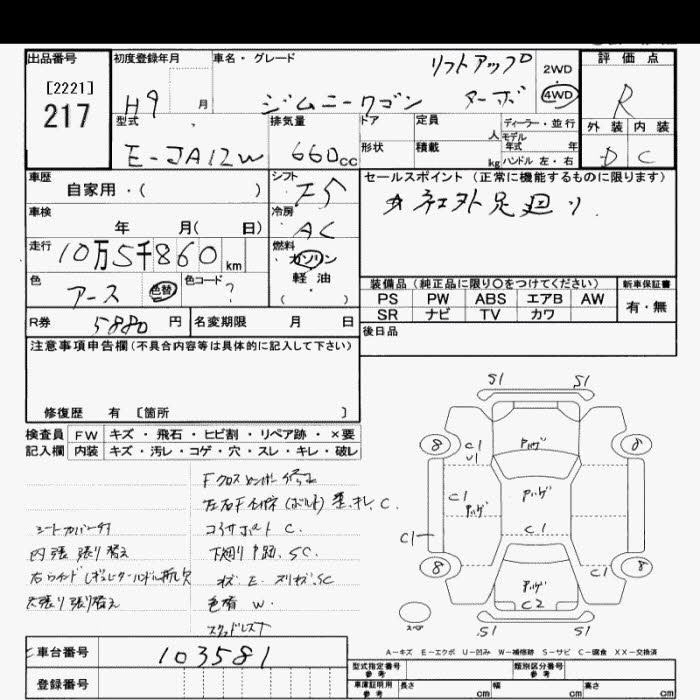 出品番号 初度登録年月 車名・グレード リフトアップ 2WD 評価点
[2221] H9 月 ジムニーワゴン ターボ 4WD R
217 型式 排気量 ドア 定員 人 ディーラー・並行 外装 内装
E-JA12W 660cc 形状 積載 kg モデル年式 年 ハンドル 左・右 D C
車歴 自家用・( ) シフト F5 セールスポイント (正常に機能するものに限ります)
車検 年 月( 日) 冷房 AC
走行 10万5千860km 燃料 ガソリン
色 アース 色替 色コード ? 軽油 ・( )
装備品(純正品に限り○をつけてください) 新車保証書
PS PW ABS エアB AW 有・無
SR ナビ TV カワ
R券 5880円 名変期限 月 日 後日品
注意事項申告欄(不具合内容等は具体的に記入して下さい)
修復歴 有 [箇所 ]
検査員 FW キズ・飛石・ヒビ割・リペア跡・×要
記入欄 内装 キズ・汚レ・コゲ・穴・スレ・キレ・破レ
S1 S1
8 8
C1
U1
C1
C1 C1
8 8
C1
C2
S1 S1
シートカバー付
内張張り替え
天張り張り替え
コラサポート C.
下廻りサビ跡. SC.
色替 W.
スタッドレス
スペア
A-キズ E-エクボ U-凹み W-補修跡 S-サビ C-腐食 XX-交換済
車台番号 103581
登録番号
型式指定番号 参考 類別区分番号 参考
車庫証明用 参考 長さ cm 幅 cm 高さ cm